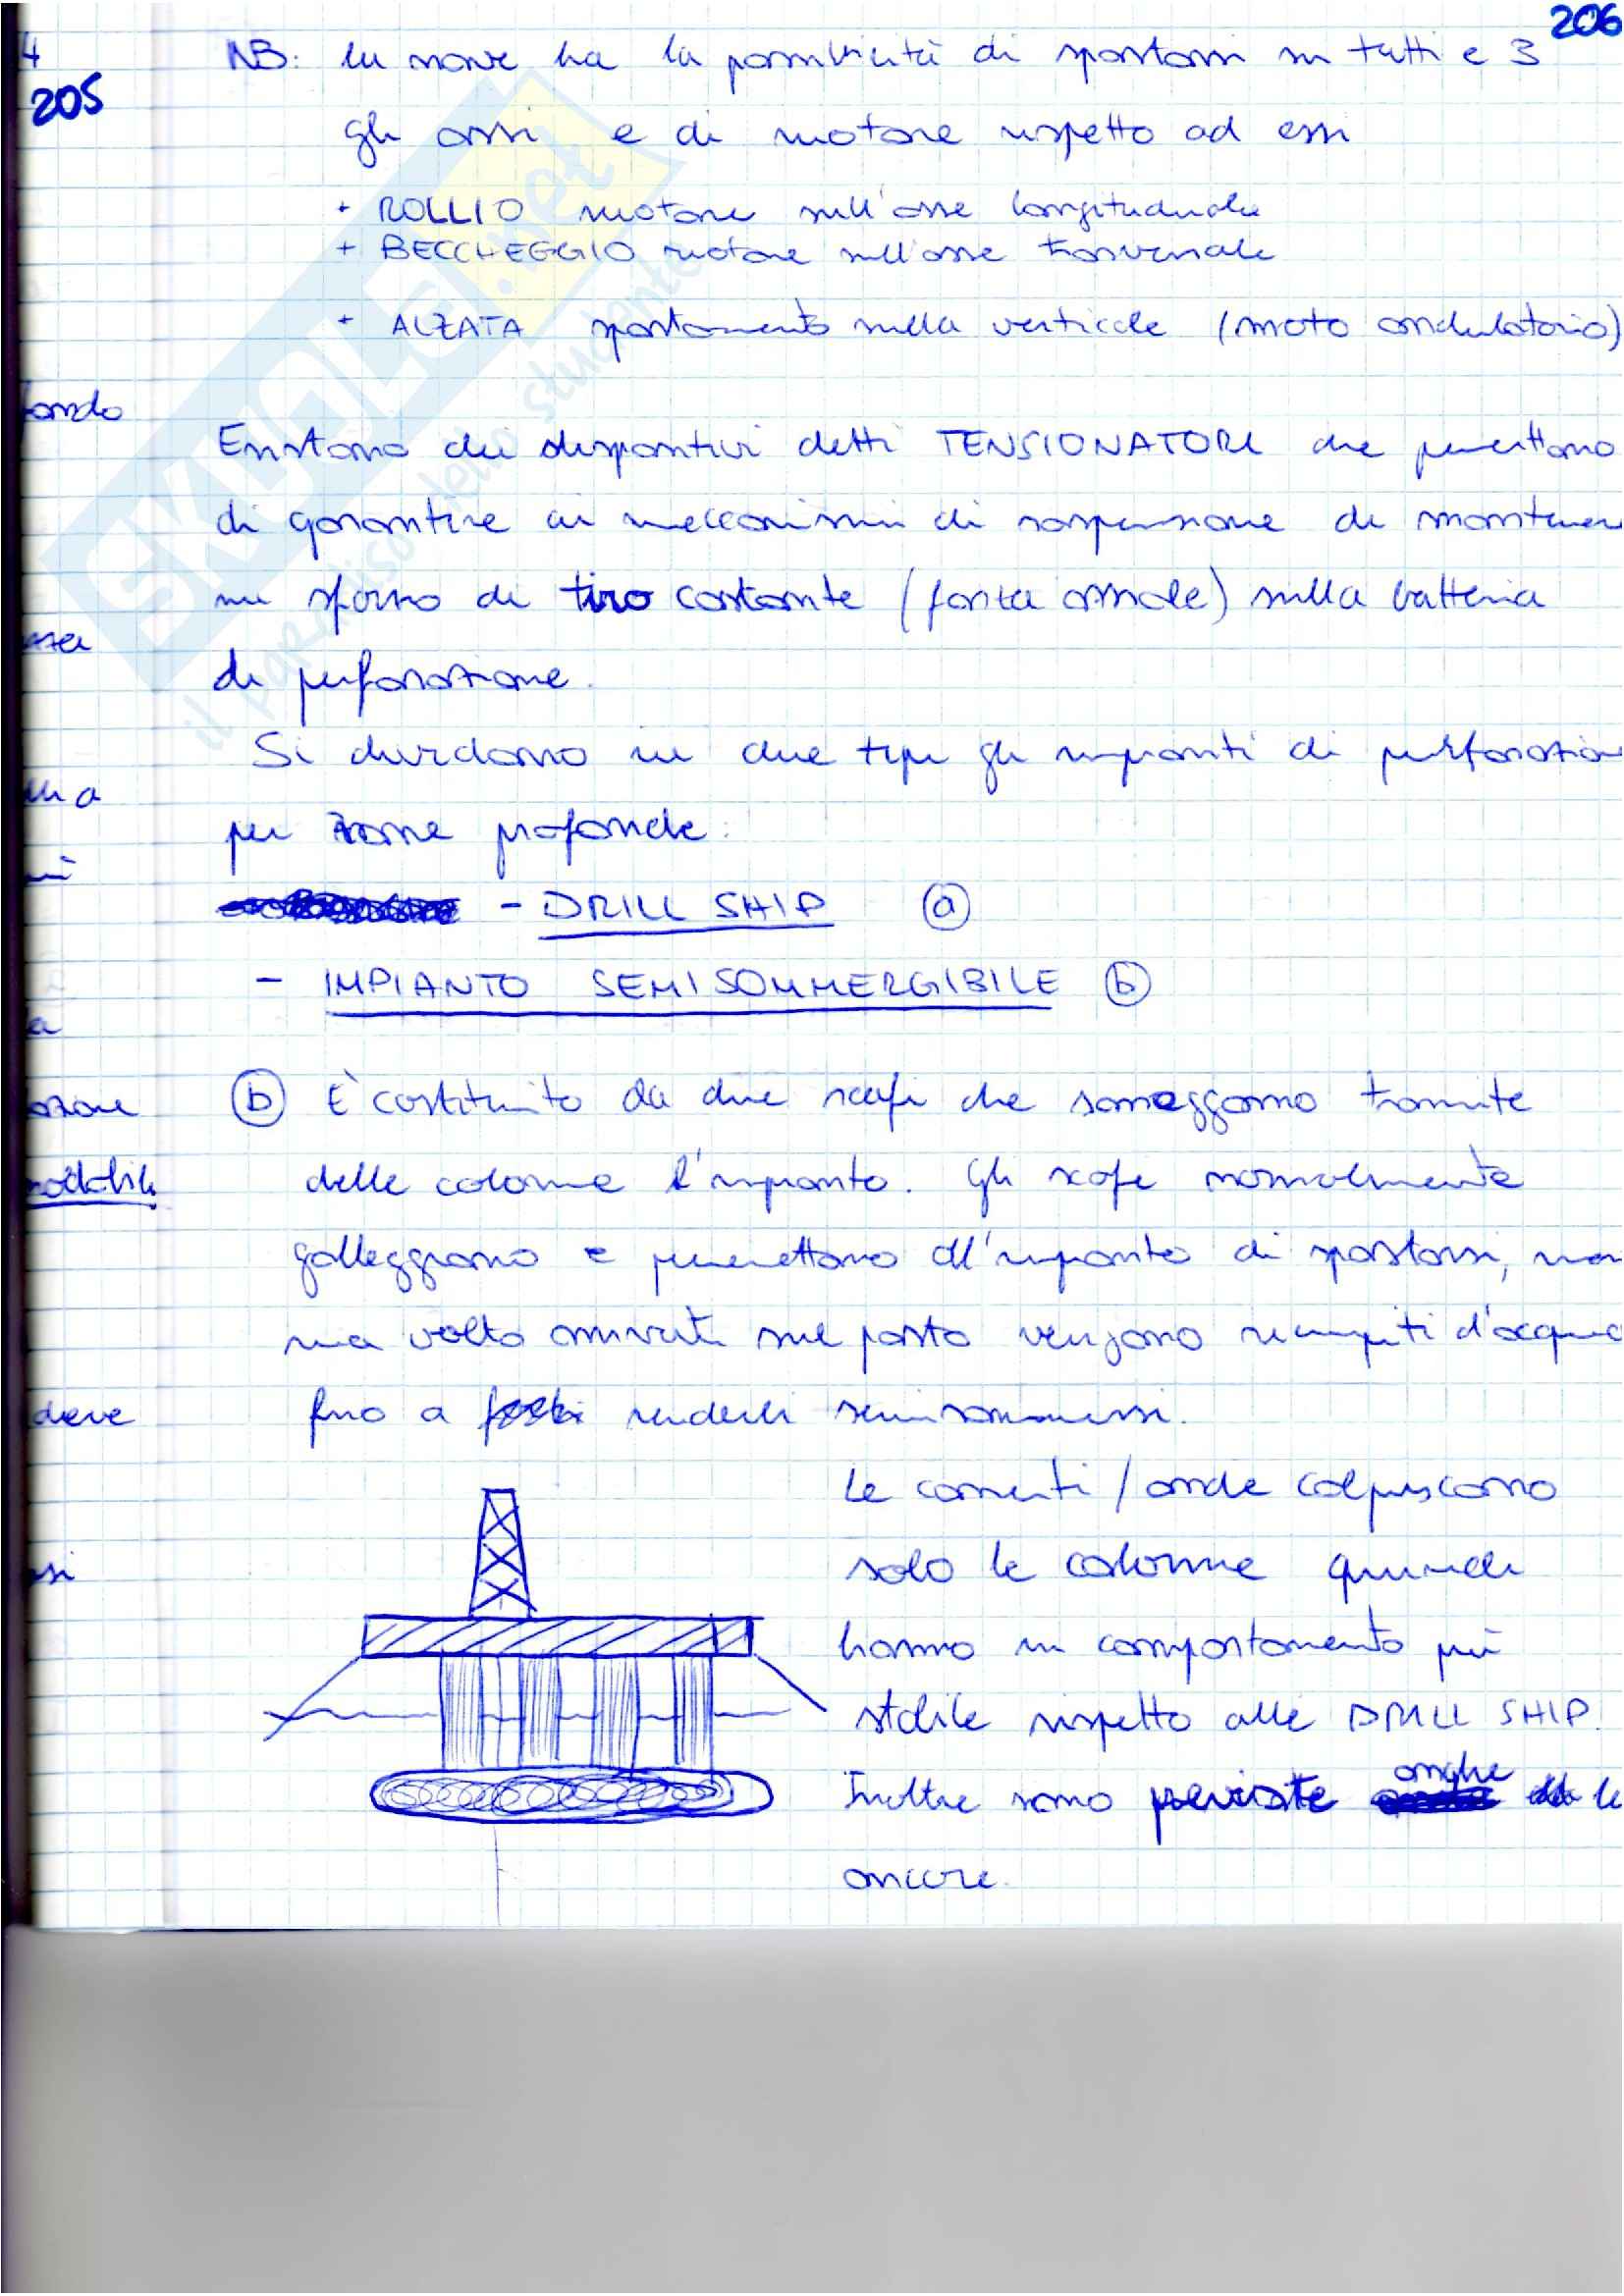 206
4
205
NB: la nave ha la possibilità di spostarsi su tutti e 3
gli assi e di ruotare rispetto ad essi
+ ROLLIO ruotare sull'asse longitudinale
+ BECCHEGGIO ruotare sull'asse trasversale
+ ALZATA spostamento sulla verticale (moto ondulatorio)
fondo
Esistono dei dispositivi detti TENSIONATORI che permettono
di garantire ai meccanismi di sospensione di mantenere
uno sforzo di tiro costante (forza assiale) sulla batteria
di perforazione.
Si dividono in due tipi gli impianti di perforazion
per zone profonde:
- DRILL SHIP (a)
- IMPIANTO SEMISOMMERGIBILE (b)
(b) È costituito da due scafi che sorreggono tramite
delle colonne l'impianto. Gli scafi normalmente
galleggiano e permettono all'impianto di spostarsi,
una volta arrivati sul posto vengono riempiti d'acqua
deve
fino a renderli semisommersi.
Le correnti / onde colpiscono
solo le colonne quindi
si
hanno un comportamento più
stabile rispetto alle DRILL SHIP.
Inoltre sono previste anche le
ancore.
SKUOLA.net
il paradiso dello studente